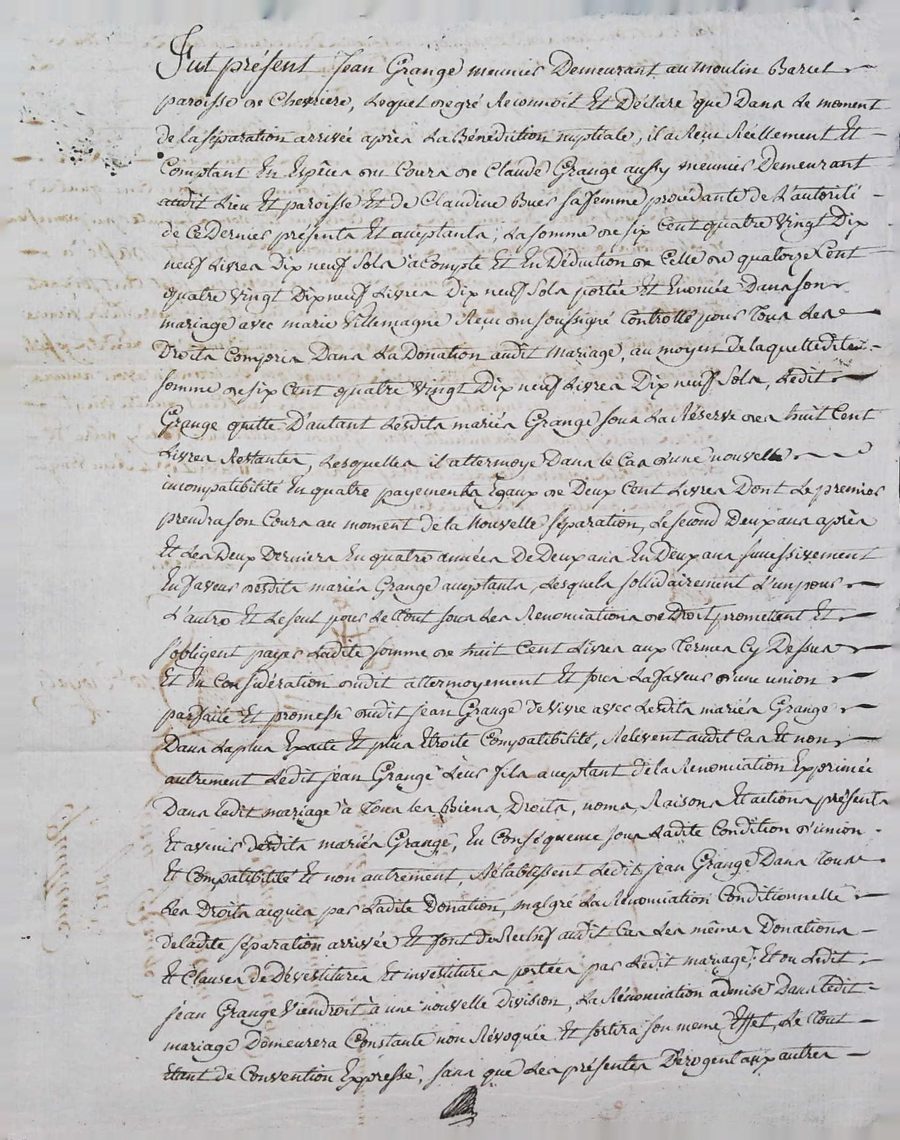 Fut présent Jean Grange meunier Demeurant au moulin Baret
paroisse de Chevriere, Lequel de gré Reconnoit Et Déclare que Dans Le moment
de La séparation arrivée après La Bénédiction nuptiale, il a Reçu Réellement Et
Comptant En Espèces au Cours de Claude Grange aussy meunier Demeurant
audit Lieu Et paroisse Et de Claudine Buer sa femme procédante de L'autorité
de Ce Dernier présents Et acceptants, La somme de six Cent quatre Vingt Dix
neuf Livres Dix neuf Sols àcompte Et En Déduction de Celle de quatorze Cent
quatre Vingt Dix neuf Livres Dix neuf Sols portée Et Enoncée Dans son
mariage avec marie Villemagne Reçu du soussigné Controllé pour Tous Les
Droits Compris Dans La Donation audit Mariage, au moyen De laquelle dite
somme de six Cent quatre Vingt Dix neuf Livres Dix neuf Sols, Ledit
Grange quitte D'autant Lesdits mariés Grange sous La Réserve des huit Cent
Livres Restantes, Lesquelles il attermoye Dans le Cas d'une nouvelle
incompatibilité En quatre payements Egaux de Deux Cent Livres Dont Le premier
prendra son Cours au moment de la Nouvelle séparation, Le second Deux ans après
Et Les Deux Derniers En quatre années De Deux ans En Deux ans successivement
En faveur desdits mariés Grange acceptants, Lesquels sollidairement L'un pour
L'autre Et Le seul pour Le Tout sous Les Renonciations de Droit promettent Et
s'obligent payer Ladite somme de huit Cent Livres aux Termes Cy Dessus
Et En Considération dudit attermoyement Et sous La faveur d'une union
parfaite Et promesse dudit jean Grange de Vivre avec Lesdits mariés Grange
Dans La plus Exacte Et plus Etroite Compatibilité, Relevent audit Cas Et non
autrement Ledit jean Grange Leur fils acceptant de la Renonciation Exprimée
Dans ledit mariage à Tous les Biens, Droits, noms, Raisons Et actions présents
Et avenir desdits mariés Grange, En Conséquence sous Ladite Condition d'union
Et Compatibilité Et non autrement, Rétablissent Ledit jean Grange Dans Tous
Les Droits acquis par Ladite Donation, malgré La Renonciation Conditionnelle
De ladite séparation arrivée Et font de Rechef audit Cas Les mêmes Donations
Et Clauses de Dévestitures Et investitures portées par Ledit mariage, Et où Ledit
jean Grange Viendroit à une nouvelle Division, La Rénonciation admise Dans ledit
mariage Demeurera Constante non Révoquée Et sortira son meme Effet, Le Tout
Etant de Convention Expresse, sans que Les présentes Dérogent aux autres